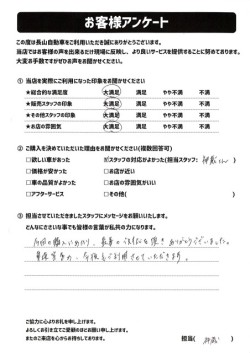 お客様アンケート
この度は長山自動車をご利用いただき誠にありがとうございます。
当店ではお客様の声を出来るだけ現場に反映し、より良いサービスを提供することに努めております。
大変お手数ですがぜひお声をお聞かせください。
① 当店を実際にご利用になった印象をお聞かせください
★総合的な満足度 大満足 満足 やや不満 不満
★販売スタッフの印象 大満足 満足 やや不満 不満
★その他スタッフの印象 大満足 満足 やや不満 不満
★お店の雰囲気 大満足 満足 やや不満 不満
② ご購入を決めていただいた理由をお聞かせください(複数回答可)
□欲しい車があった ☑スタッフの対応がよかった(担当スタッフ: さん)
□価格が安かった □お店が近い
□車の品質がよかった □お店の雰囲気がいい
□アフターサービス □その他( )
③ 担当させていただきましたスタッフにメッセージをお願いいたします。
どんなにささいな事でも皆様の言葉が私共の力になります。
ありがとうございました。
今後もご利用させていただきます。
ご協力に心よりお礼を申し上げます。
よろしくお引き立てご愛顧のほどお願い申し上げます。
またのご来店を心からお待ちしております。
担当( )